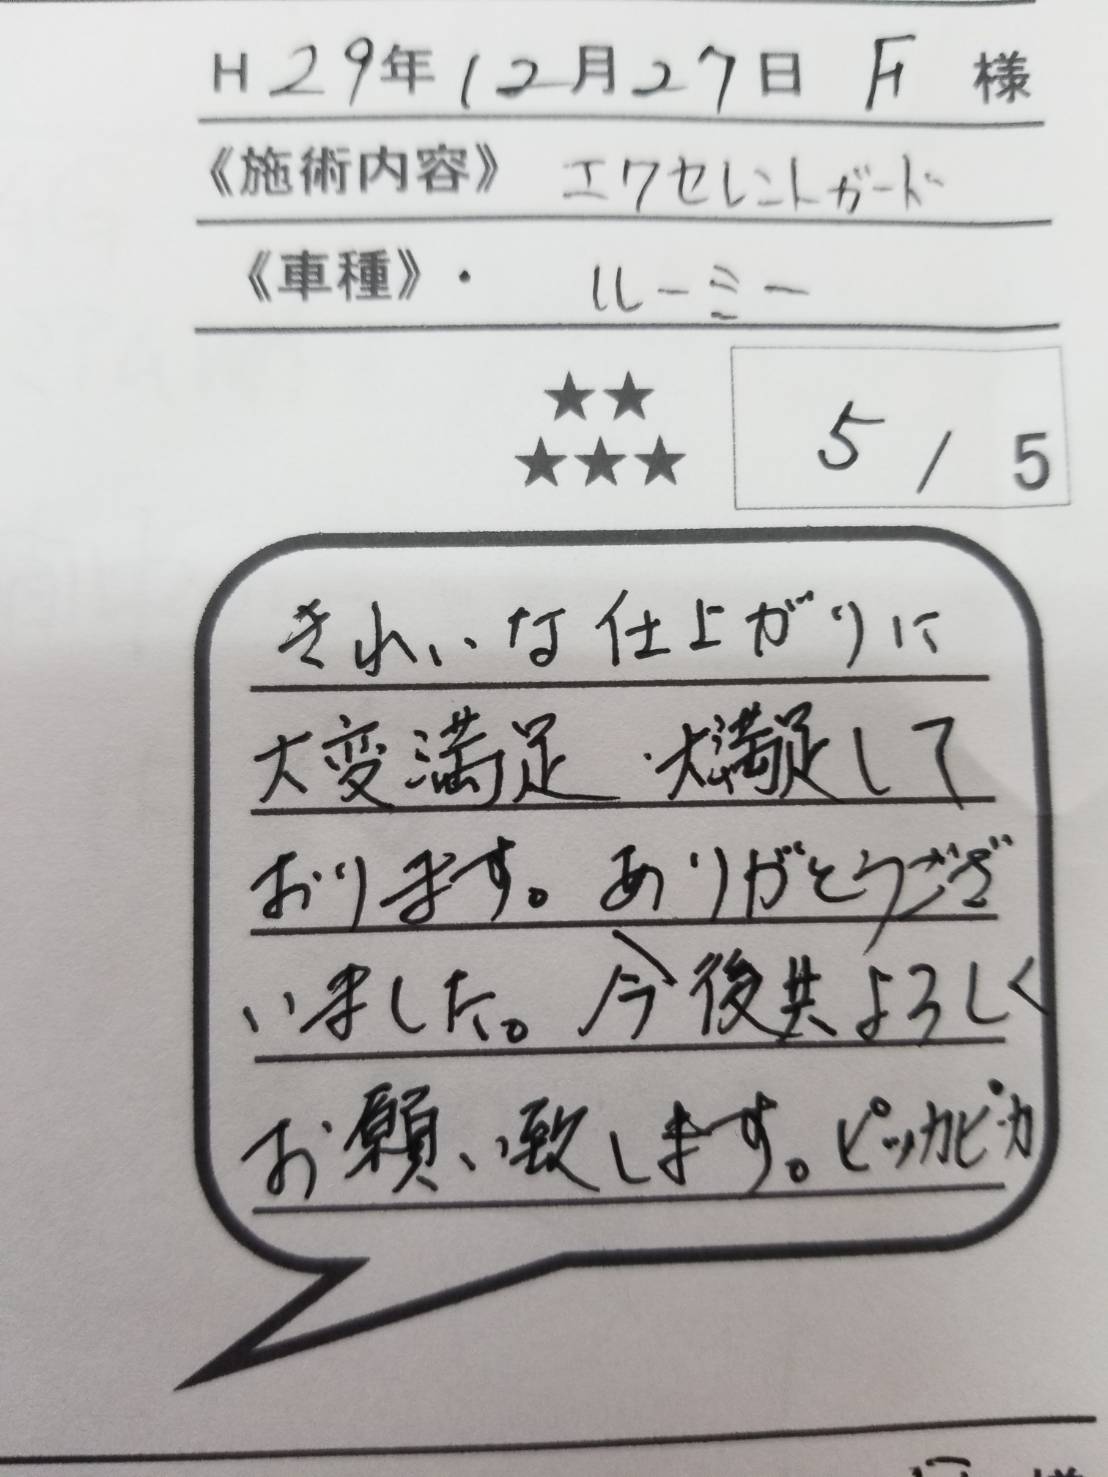 H29年12月27日 F 様
《施術内容》 エクセレントガード
《車種》・ ルーミー
★★
★★★
5/5
きれいな仕上がりに
大変満足 大満足して
おります。ありがとうござ
いました。今後共よろしく
お願い致します。ピッカピカ
様